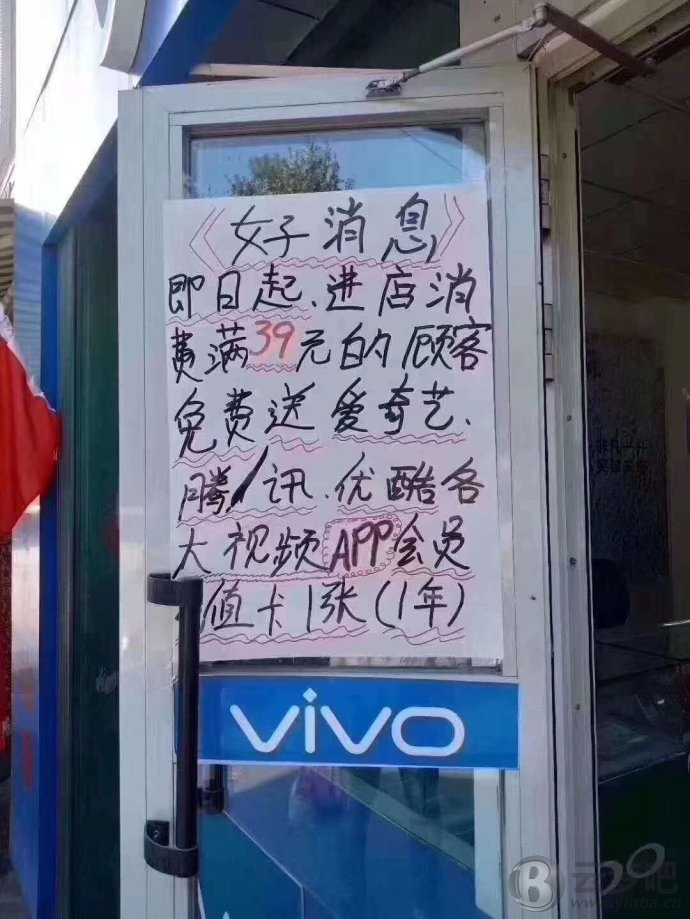 《女子消息》
即日起、进店消
费满39元的顾客
免费送爱奇艺、
腾讯、优酷各
大视频APP会员
值卡1张(1年)
vivo
www.ymba.cn